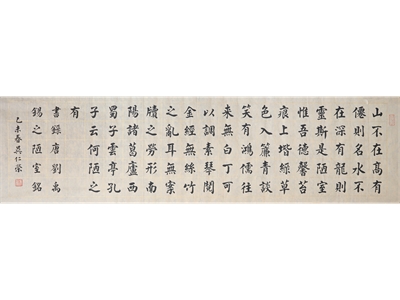 山不在高有
僊則名水不
在深有龍則
靈斯是陋室
惟吾德馨苔
痕上堦綠草
色入簾青談
笑有鴻儒往
来無白丁可
以調素琴閱
金經無絲竹
之亂耳無案
牘之勞形南
陽諸葛廬西
蜀子雲亭孔
子云何陋之
有
書錄唐劉禹
錫之陋室銘
己未春吳仁榮